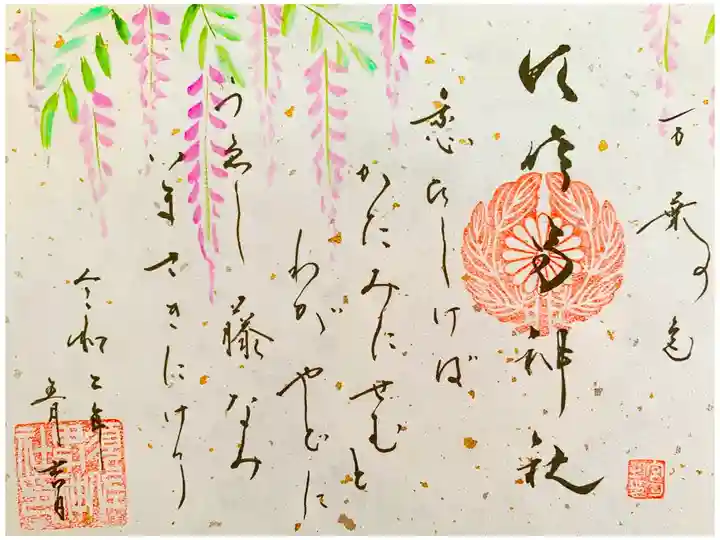 万葉の色
神社
恋ひしけば
かたみにせむと
わがやどに
うゑし藤なみ
いまさきにけり
令和二年
五月吉日